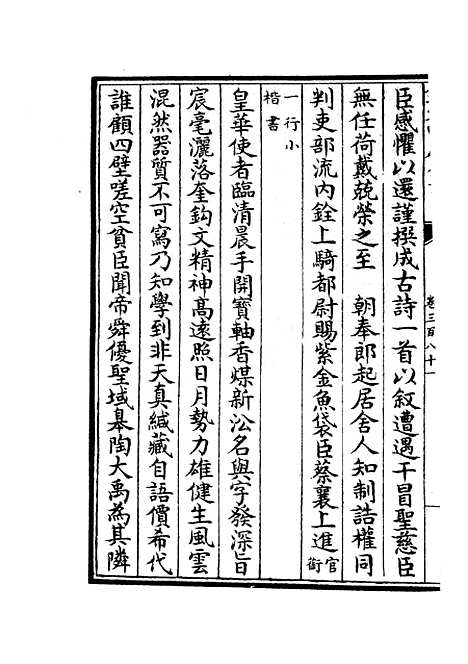 臣感懼以還謹撰成古詩一首以叙遭遇干冒聖慈臣
無任荷戴兢榮之至　朝奉郎起居舍人知制誥權同
判吏部流内銓上騎都尉賜紫金魚袋臣蔡襄上進官銜
一行小楷書
皇華使者臨清晨手開寶軸香煤新沄名與字發深旨
宸毫灑落奎鈎文精神高遠照日月勢力雄健生風雲
混然器質不可寫乃知學到非天真緘藏自語價希代
誰顧四壁嗟空貧臣聞帝舜優聖域臯陶大禹為其隣
卷三百八十一